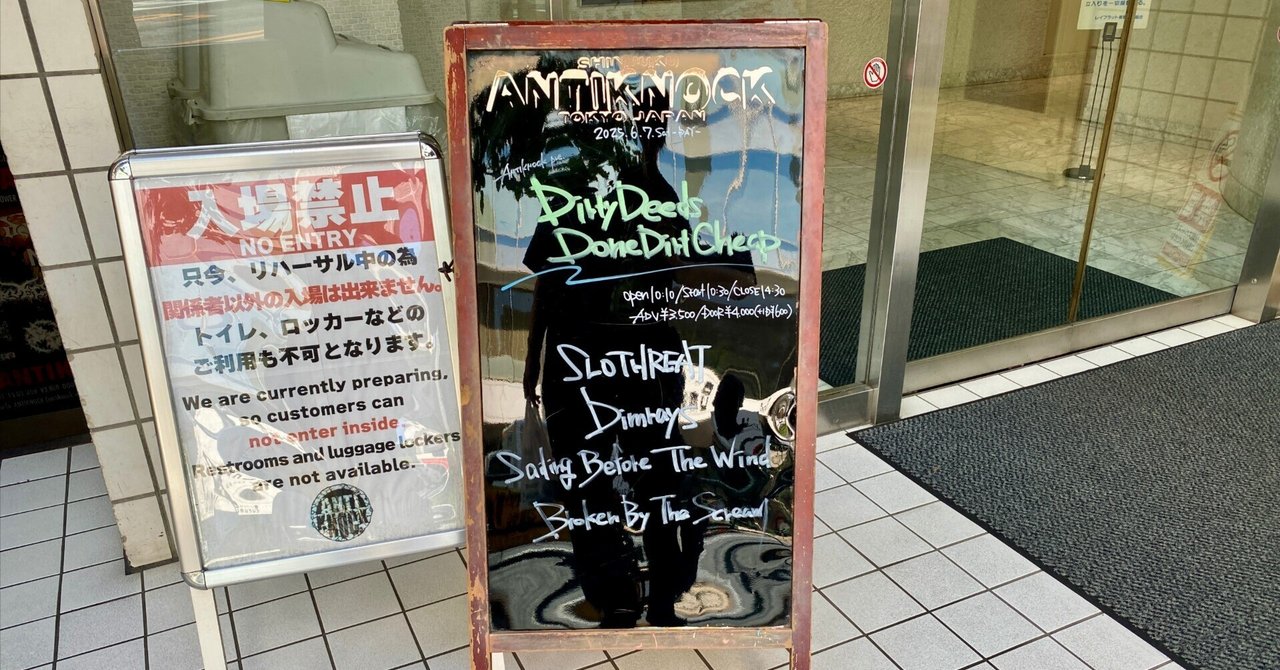 入場禁止
NO ENTRY
只今、リハーサル中の為
関係者以外の入場は出来ません。
トイレ、ロッカーなどの
ご利用も不可となります。
We are currently preparing,
so customers can
not enter inside.
Restrooms and luggage lockers
are not available.
ANTI
KNOCK
SHINJUKU
ANTIKNOCK
TOKYO JAPAN
2025.6.7.Sat -DAY-
Antiknock pre.
Dirty Deeds
Done Dirt Cheap
open 10:10/Start 10:30/CLOSE 14:30
ADV ¥3,500/DOOR ¥4,000(+1D¥600)
SLOTHREAT
Dimrays
Sailing Before The Wind
Broken By The Scream